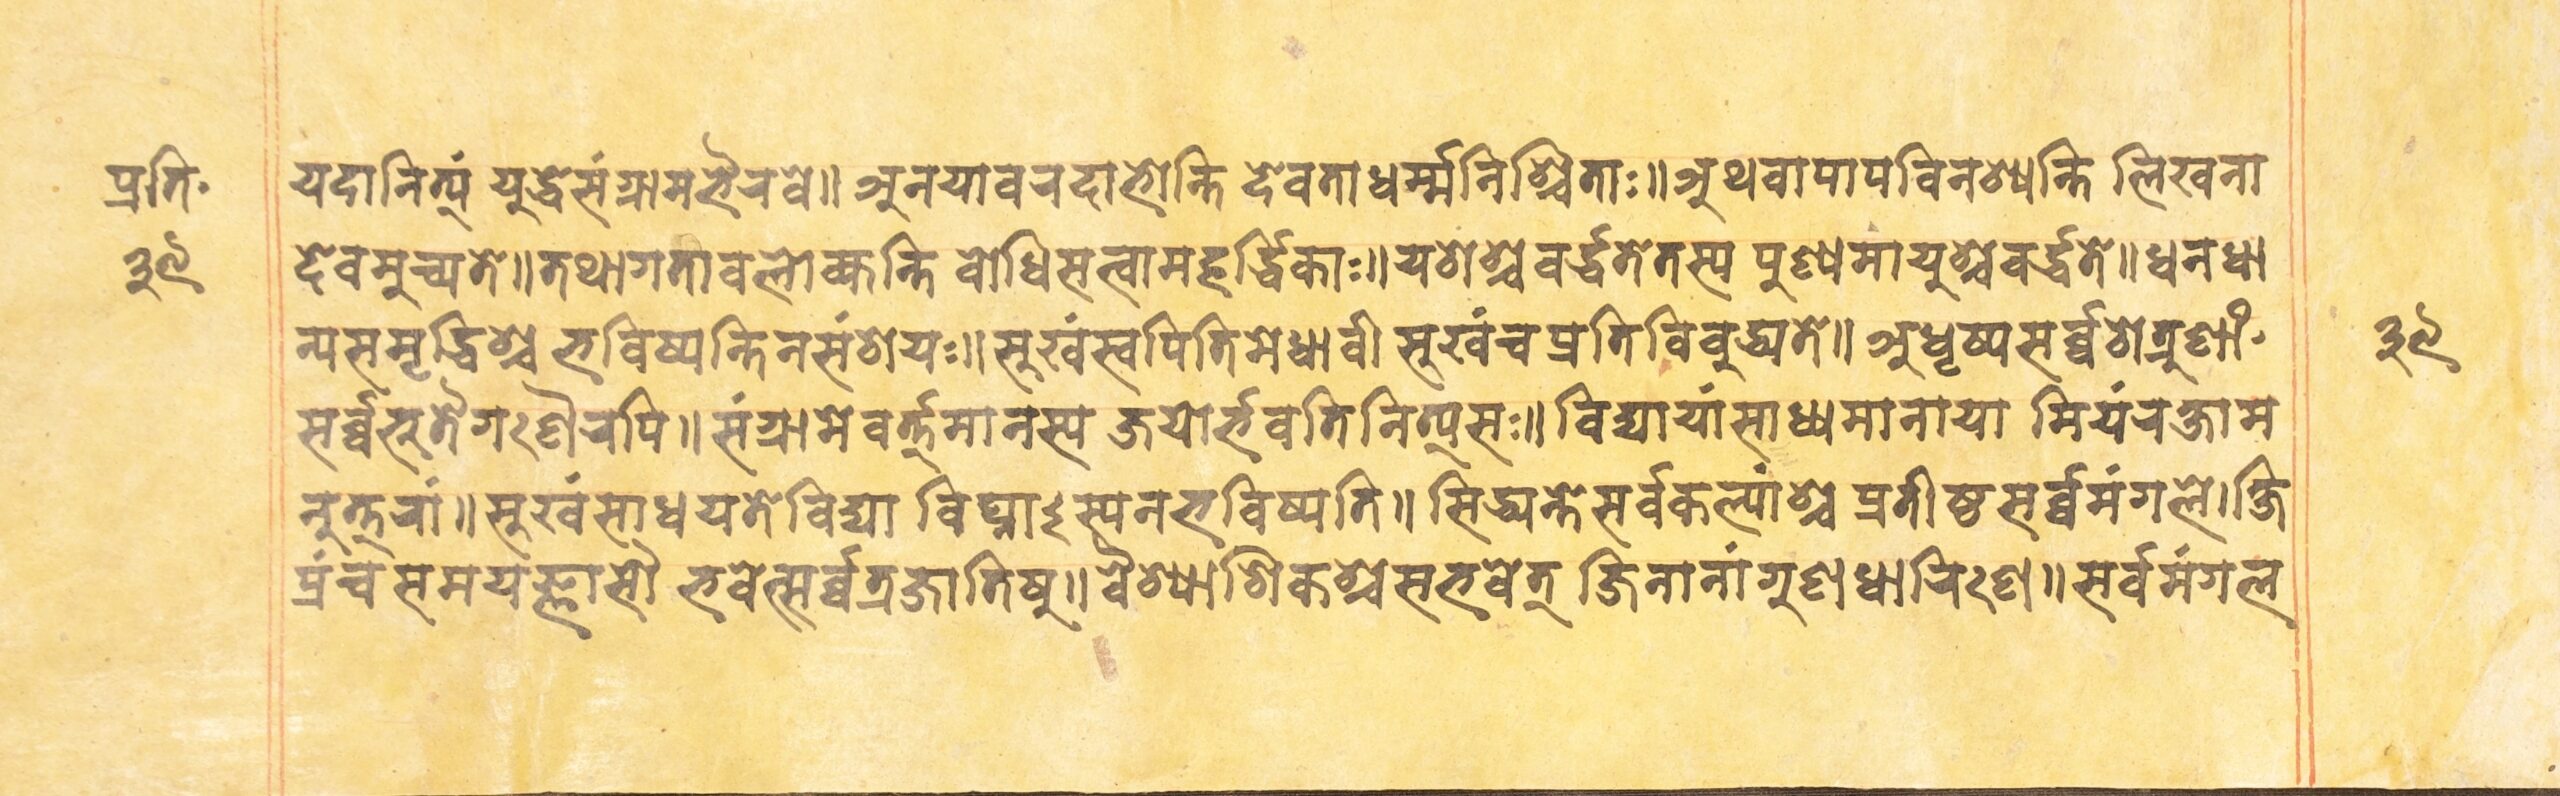 प्रति॰
३९
यदानित्यं युद्धेसंग्रामभैरवे॥ अनयावरदाभोन्ति देवताधर्म्मनिश्चिताः॥अथवापापविनश्यन्ति लिखना
देवमुच्यते॥तथागतावलोक्कन्ति वोधिसत्वामहर्द्धिकाः॥यशेश्चवर्द्धतेतस्य पुण्यमायुश्चवर्द्धते॥धनधा
न्यसमृद्धिश्च भविष्यन्तिनसंशयः॥सुखंस्वपितिमेधावी सुखंचप्रतिविवुद्ध्यते॥ अधृष्यसर्व्वशेत्रुणां॰
सर्व्वभुतैगःणैरपि॥संग्रामेवर्त्तमानस्य जयोर्भवतिनित्यसः॥विद्यायांसाध्यमानाया मियंरक्षाम
नुत्तरां॥सुखंसाधयतेविद्या विघ्नाऽस्यनभविष्यति॥सिद्ध्यन्तेसर्वकल्पांश्च प्रतीष्ठसर्व्वमंगले।क्षि
प्रंचसमयज्ञासौ भवेत्सर्व्वत्रजातिषु॥वैश्याशिकश्चसभवेत् जिनानांगुणधारिःण॥सर्वमंगल
३९